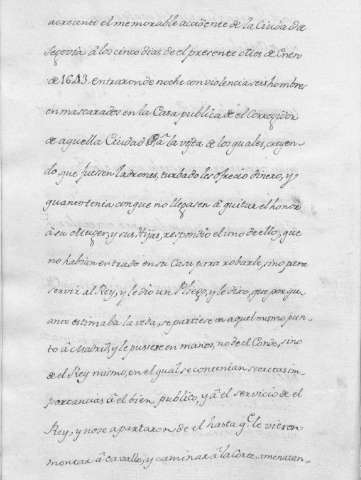 acreciente el memorable accidente de la Ciudad de
Segovia â los cinco dias de el presente mes de Enero
de 1643. entraron de noche con violencia seis hombres
enmascarados en la Casa publica de el Corregidor
de aquella Ciudad â la vista de los quales, creyen
do que fuessen ladrones, turbado les ofrecio dinero, y
quanto tenia con que no llegasen â quitar el honor
â su Muger, y sus Hijas, respondio el uno de ellos, que
no habian entrado en su Casa para robarle, sino para
servir al Rey, y le dio un Pliego, y le dixo, que por qu
anto estimaba la vida, se partiese en aquel mismo pun
to â Madrid, y le pusiese en manos, no de el Conde, sino
de el Rey mismo, en el qual se contenian secretas im
portancias â el bien publico, y â el servicio de el
Rey, y no se apartaron de el hasta q.e le vieron
montar â cavallo, y caminar â la Corte, amenazan